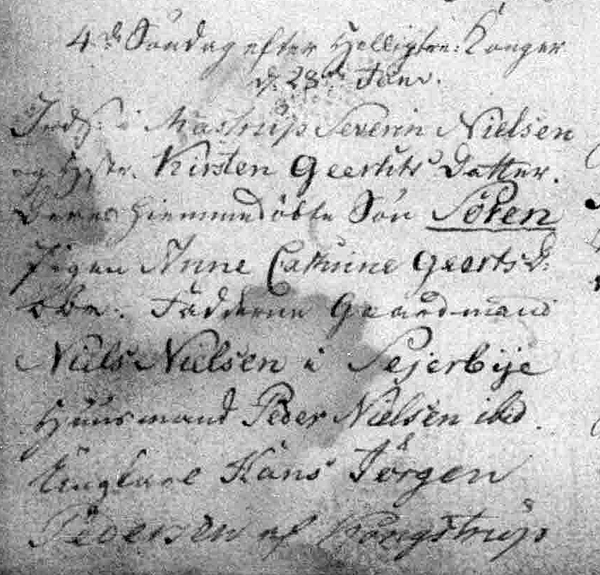 4de Søndag efter Hellig tre Konger
d: 28de Janr.
Inds: i Mastrup Severin Nielsen
og Hstr. Kirsten Geertsts Datter.
Deres hiemmedøbte Søn Søren
Pigen Anne Cathrine Geerts D:
bar. Fadderne Gaardmand
Niels Nielsen i Sejerbÿe
Huusmand Peder Nielsen ibid.
Ungkarl Hans Jørgen
Pedersen af Kongstrup